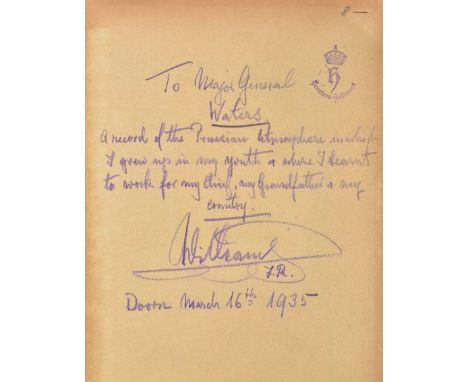 8 —
To Major General
Waters.
A record of the Prussian Atmosphere in which
I grew up in my youth & where I learnt
to work for my Chief, my Grandfather & my
country.
William
I.R.
Doorn March 16th 1935